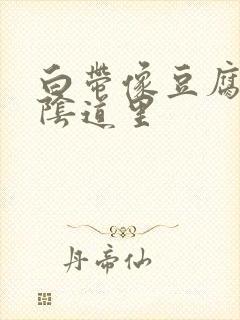 白帶像豆腐
陰道里
丹帝仙